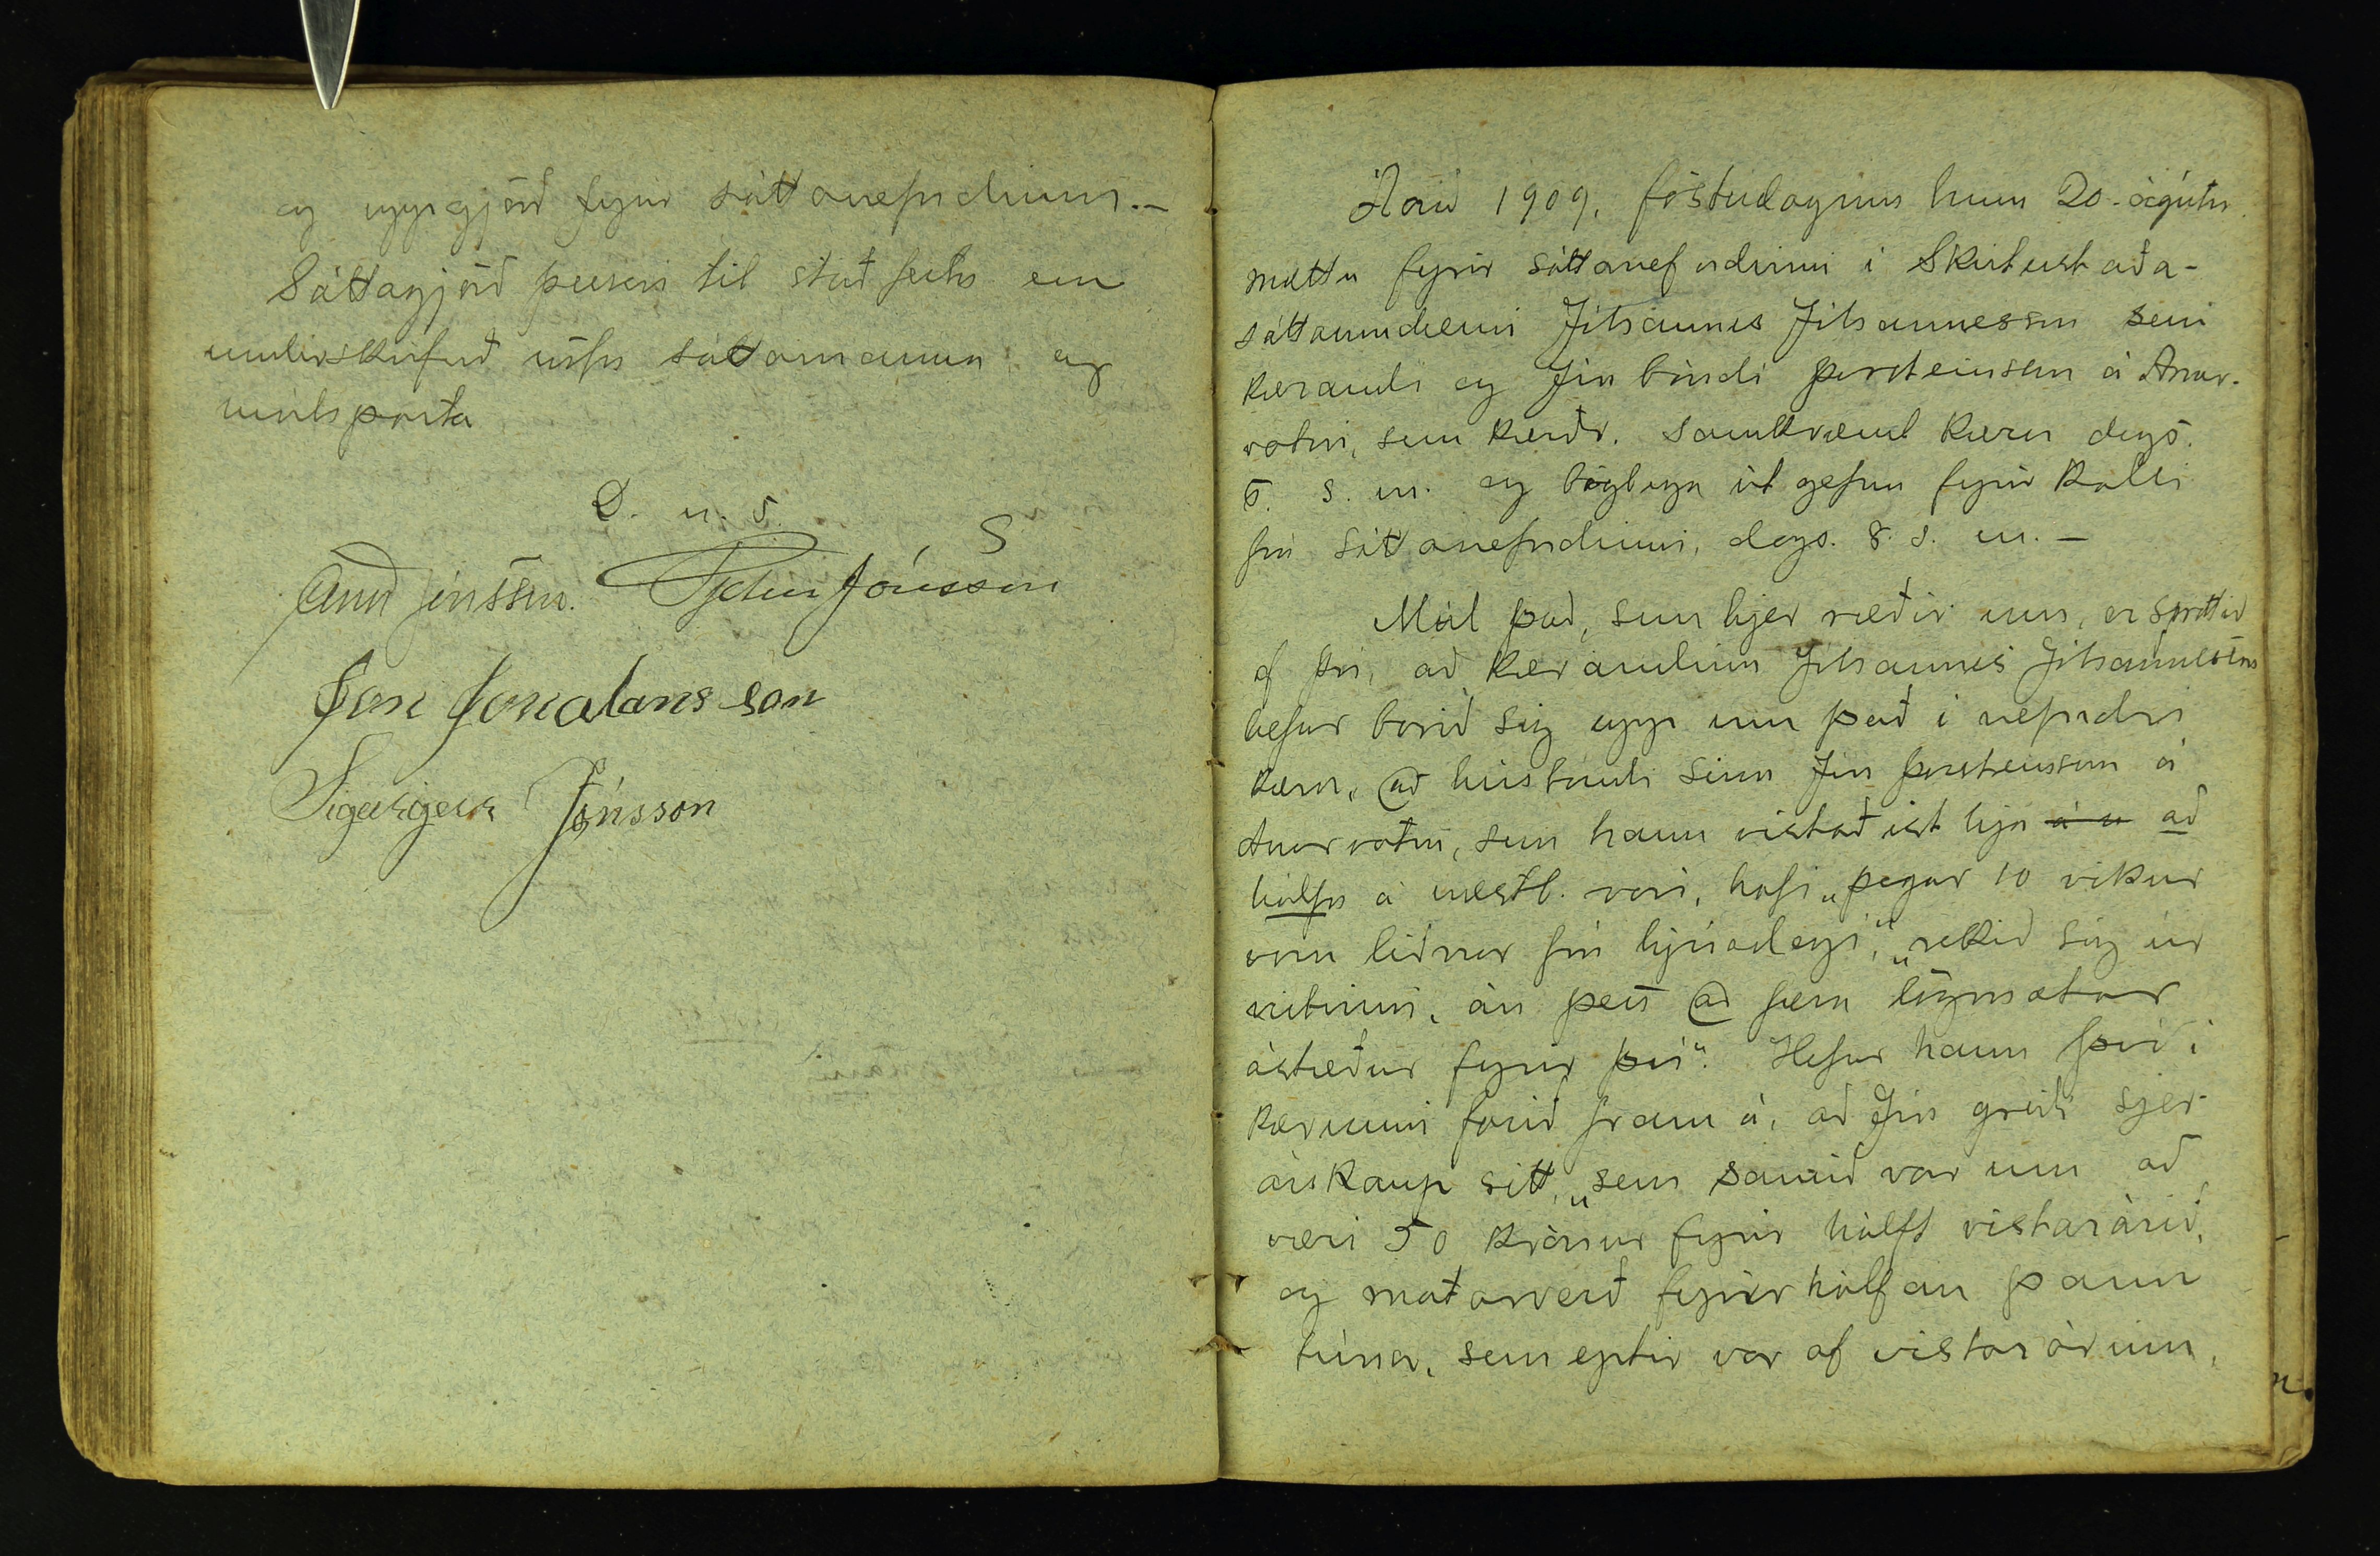 og uppgjörð fyrir sáttanefndinni.-
Sáttagjörð þessari til staðfestu eru
undirskrifuð nöfn sáttamanna og
málsparta
D. u. s.
S
Árni Jónsson. Pjetur Jónsson
Jón Jónatansson
Sigurgeir Jónsson
Árið 1909, föstudaginn hinn 20. ágúst
mættu fyrir sáttanefndinni í Skútustaða-
sáttaumdæmi Jóhannes Jóhannesson sem
kærandi og Jón bóndi Þorsteinsson á Arnar-
vatni, sem kærðr. samkvæmt kæru dags.
5. s. m. og löglega út gefnu fyrir kalli
frá sáttanefndinni, dags. 8. s. m. -
Mál það, sem hjer ræðir um, er sprottið
af því, að kærandinn Jóhannes Jóhannesson
hefur borið sig upp um það í nefndri
kæru, að húsbóndi sinn Jón Þorsteinsson á
Arnarvatni, sem hann vistaðist hjá á a að
hálfu á næstl. vori, hafi „þegar 10 vikur
voru liðnar frá hjúadegi," „rekið sig úr
vistinni, án þess að færa lögmætar
ástæður fyrir því". Hefur hann því í
kærunni farið fram á, að Jón greiði sjer
árskaup sitt, „sem samið var um að
væri 50 krónur fyrir hálft vistarárið,
og matarverð fyrir hálfan þann
tíma, sem eptir var af vistarárinu,